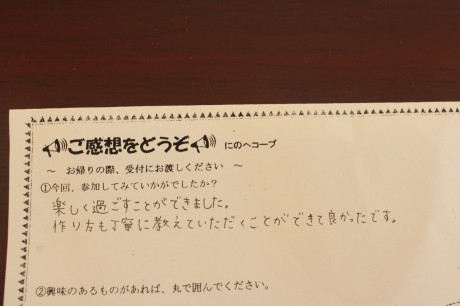 ご感想をどうぞ にのへコープ
～ お帰りの際、受付にお渡しください ～
①今回、参加してみていかがでしたか？
楽しく過ごすことができました。
作り方も丁寧に教えていただくことができて良かったです。
②興味のあるものがあれば、丸で囲んでください。